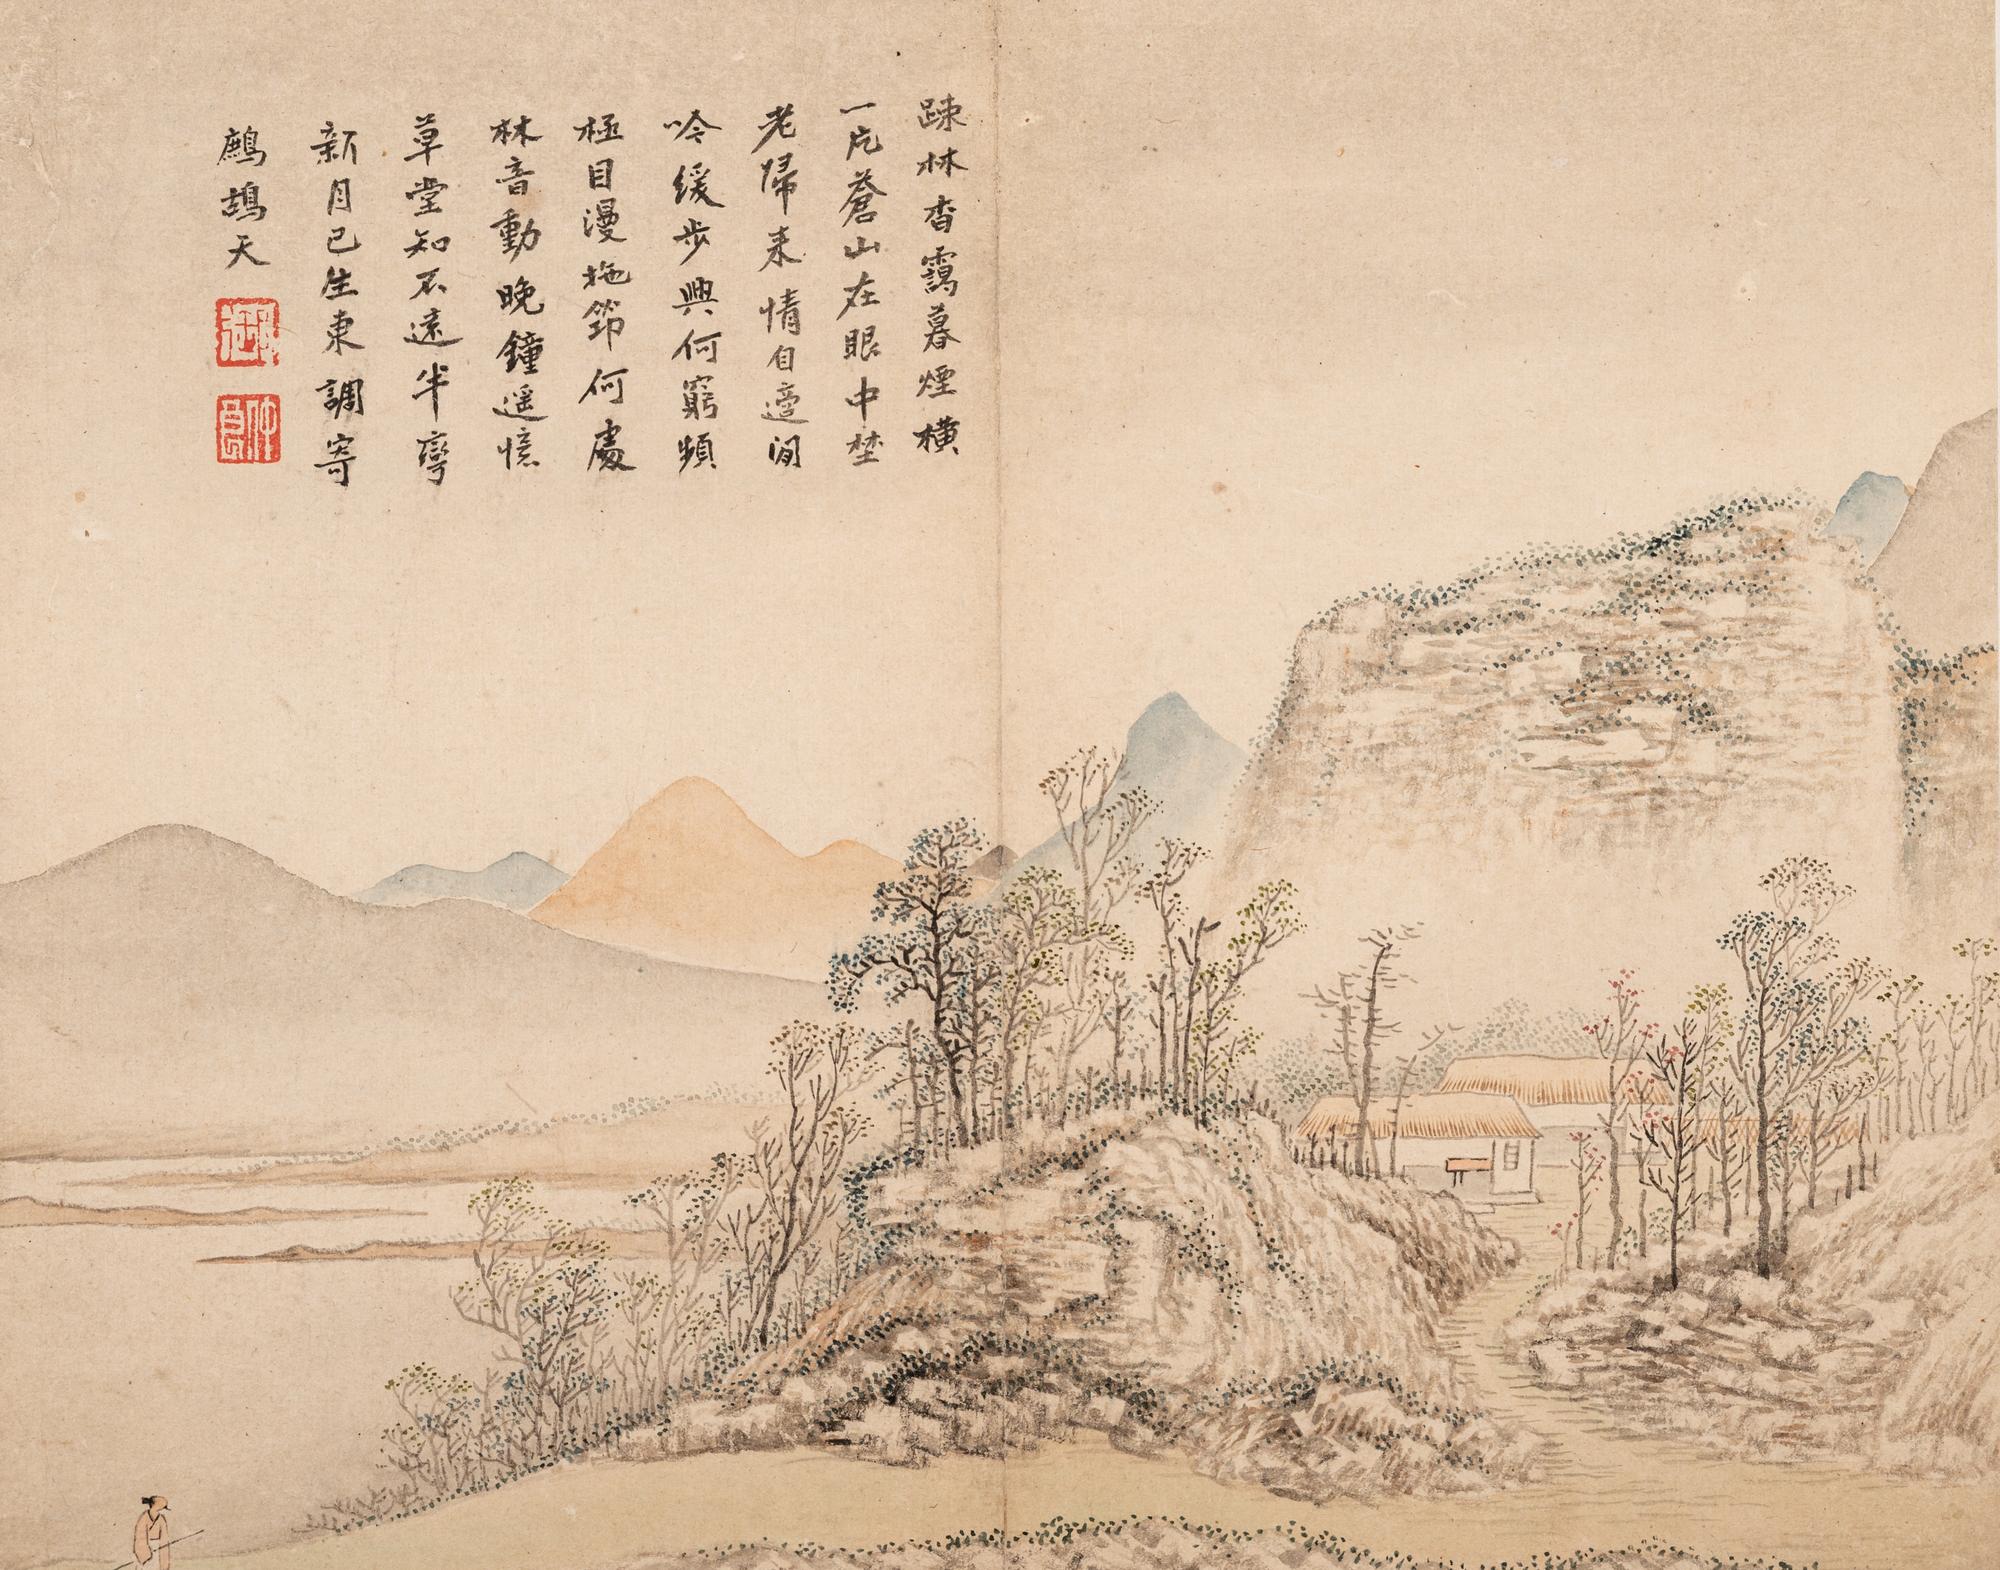 疎林杳靄暮煙橫
一片蒼山在眼中埜
老歸来情自適閒
吟緩步興何窮頻
極目漫拖筇何處
林音動晚鐘遥憶
草堂知不遠半彎
新月已生東調寄
鷓鴣天